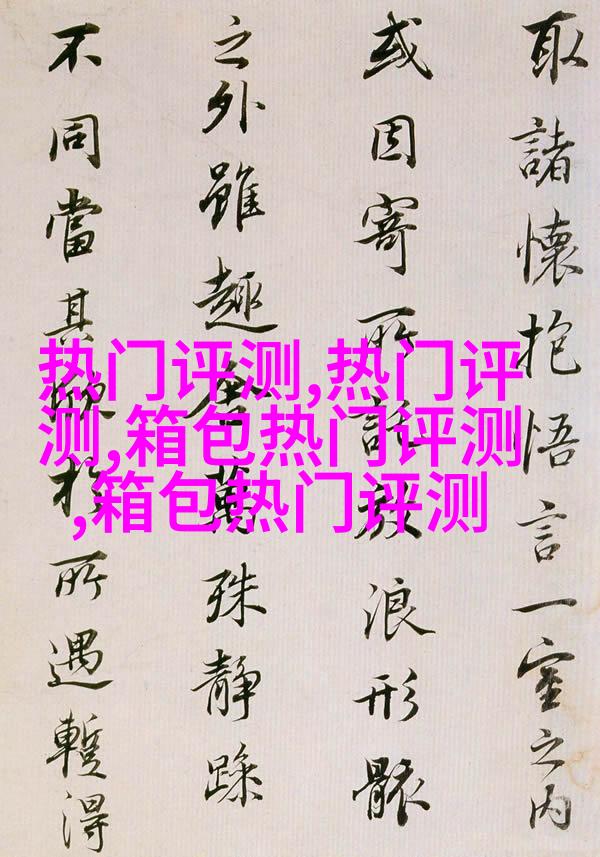 取諸懷抱悟言一室之内
或因寄所託放浪形骸
之外雖趣舍萬殊静躁
不同當其欣於所遇暫得
热门评测,热门评
测,箱包热门评测
,箱包热门评测